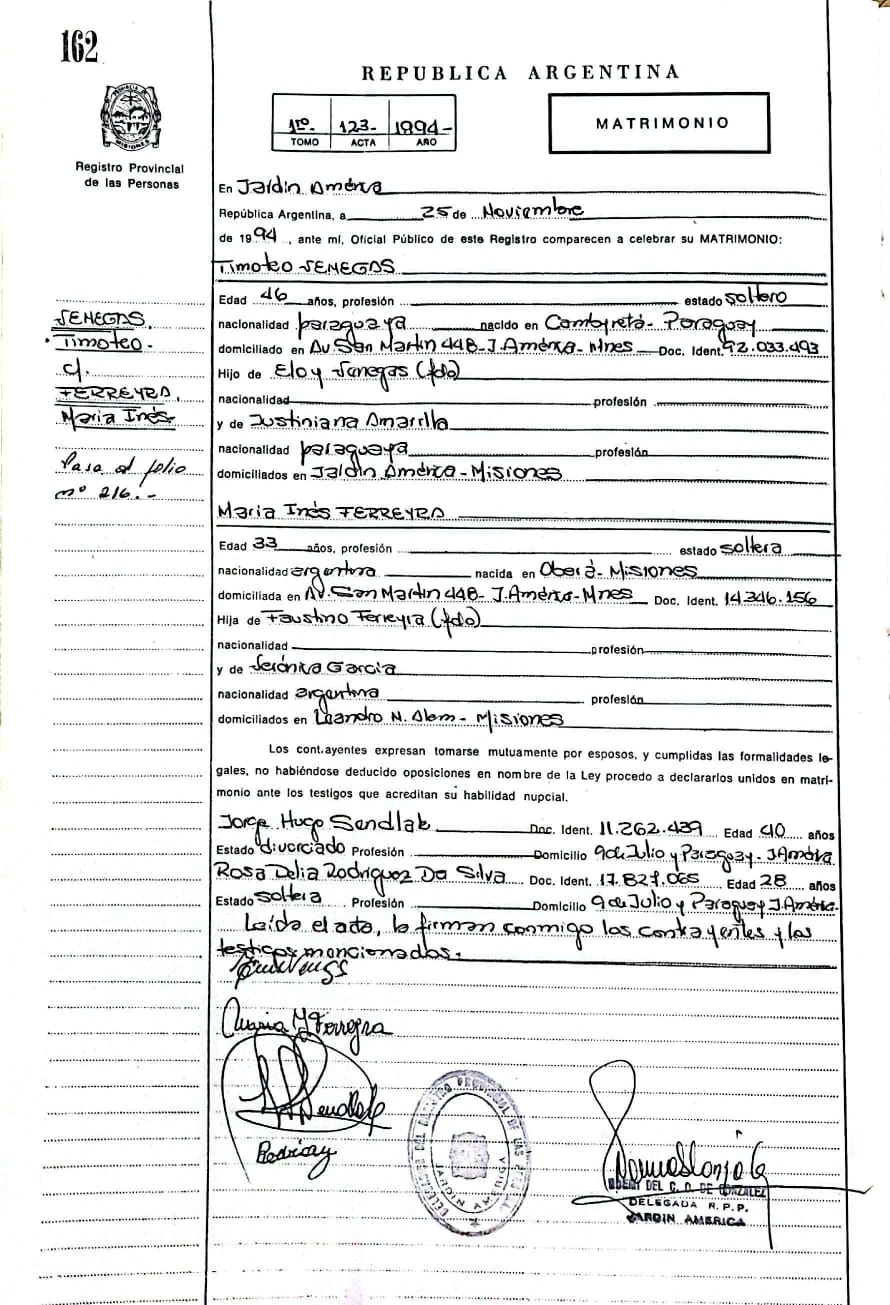 162
REPUBLICA ARGENTINA
1º- 123- 1994-
TOMO ACTA AÑO
MATRIMONIO
Registro Provincial
de las Personas
En Jardin América
República Argentina, a 25 de Noviembre
de 1994, ante mí, Oficial Público de este Registro comparecen a celebrar su MATRIMONIO:
Timoteo SENEGAS
Edad 46 años, profesión estado soltero
nacionalidad paraguaya nacido en Cambyretá- Paraguay
domiciliado en Av. San Martin 448-J.América- Mnes Doc. Ident. 92.033.493
Hijo de Eloy Senegas (fdo)
nacionalidad profesión
y de Justiniana Amarilla
nacionalidad paraguaya profesión
domiciliados en Jardin América-Misiones
SENEGAS,
Timoteo-
c/.
FERREYRA,
Maria Inés-
Pasa al folio
nº 216.-
Maria Inés FERREYRA
Edad 33 años, profesión estado soltera
nacionalidad argentina nacida en Oberá- Misiones
domiciliada en Av. San Martin 448- J.América-Mnes Doc. Ident. 14.346.156
Hija de Faustino Ferreyra (fdo)
nacionalidad profesión
y de Verónica Garcia
nacionalidad argentina profesión
domiciliados en Leandro N. Alem- Misiones
Los contrayentes expresan tomarse mutuamente por esposos, y cumplidas las formalidades le-
gales, no habiéndose deducido oposiciones en nombre de la Ley procedo a declararlos unidos en matri-
monio ante los testigos que acreditan su habilidad nupcial.
Jorge Hugo Sendlak Doc. Ident. 11.262.439 Edad 40 años
Estado divorciado Profesión Domicilio 9 de Julio y Paraguay-J.América
Rosa Delia Rodriguez Da Silva Doc. Ident. 17.827.065 Edad 28 años
Estado soltera Profesión Domicilio 9 de Julio y Paraguay J.América-
Leída el acta, la firman conmigo los contrayentes y los
testigos mencionados.
Maria I Ferreyra
DELEGACION DEL REGISTRO PROVINCIAL DE LAS PERSONAS
JARDIN AMERICA
DEL C. D. DE GONZALEZ
DELEGADA R. P. P.
JARDIN AMERICA